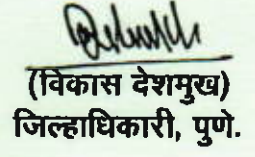 (विकास देशमुख)
जिल्हाधिकारी, पुणे.